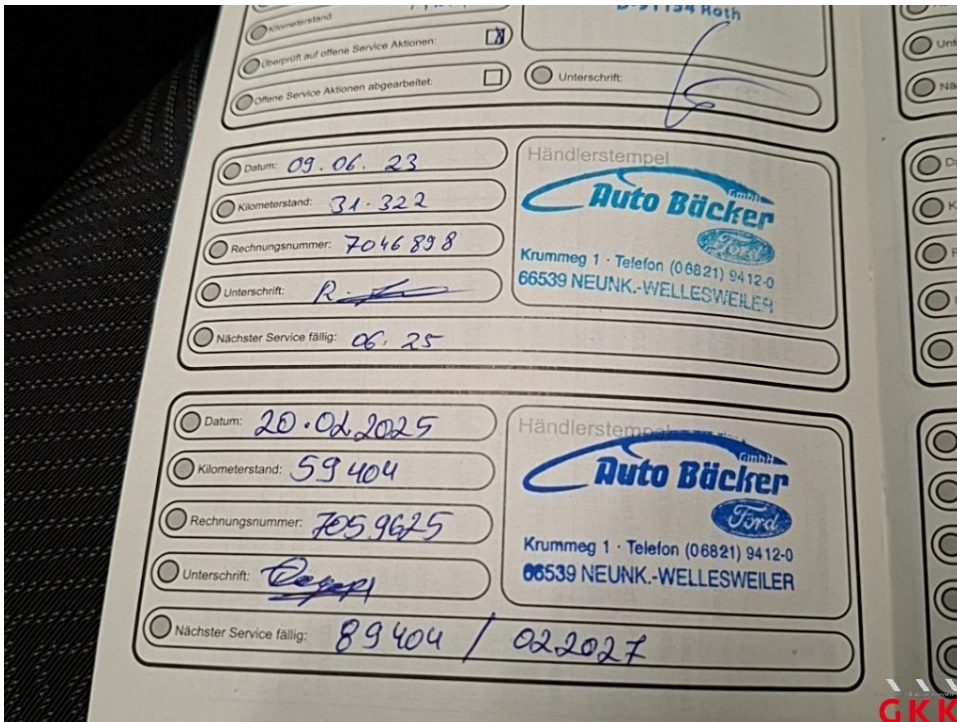 Kilometerstand:
D-91154 Roth
Überprüft auf offene Service Aktionen:
Offene Service Aktionen abgearbeitet:
Unterschrift:
Datum: 09.06.23
Kilometerstand: 31.322
Rechnungsnummer: 7046898
Unterschrift:
Nächster Service fällig: 06.25
Händlerstempel
Auto Bäcker GmbH
Ford
Krummeg 1 · Telefon (06821) 9412-0
66539 NEUNK.-WELLESWEILER
Datum: 20.02.2025
Kilometerstand: 59404
Rechnungsnummer: 7059625
Unterschrift:
Nächster Service fällig: 89404 / 022027
Händlerstempel
Auto Bäcker GmbH
Ford
Krummeg 1 · Telefon (06821) 9412-0
66539 NEUNK.-WELLESWEILER
GKK